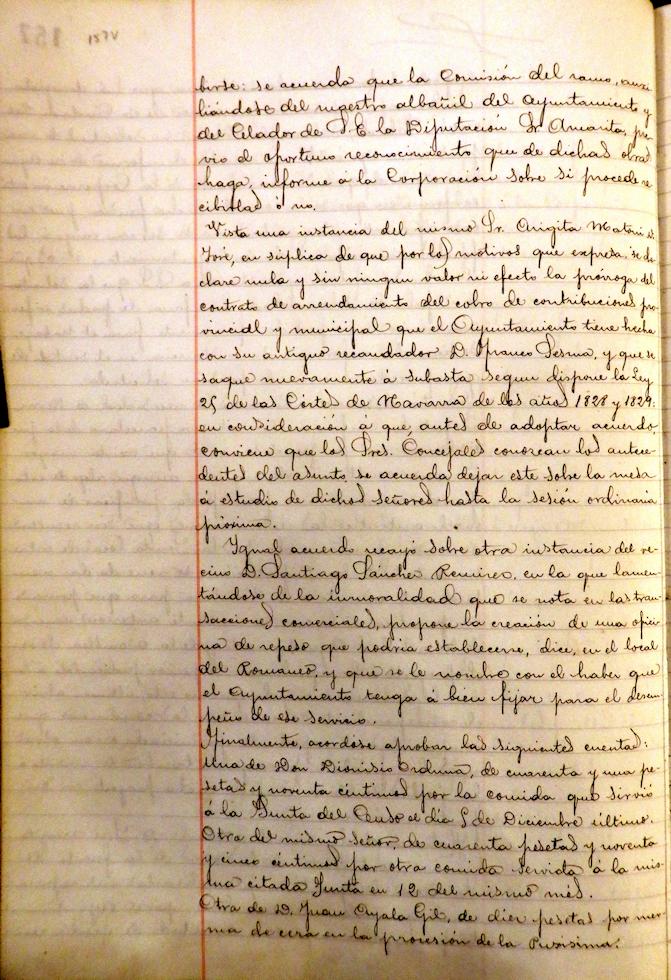 157v
birse: se acuerda que la Comisión del ramo, auxi-
liándose del maestro albañil del Ayuntamiento y
del Celador de S. E. la Diputación Sr. Amarita, pre-
vio el oportuno reconocimiento que de dichas obras
haga, informe á la Corporación sobre si procede re-
cibirlas ó no.
Vista una instancia del mismo Sr. Arigita Matorri D.
José, en súplica de que por los motivos que expresa, se de-
clare nula y sin ningun valor ni efecto la prórroga del
contrato de arrendamiento del cobro de contribuciones pro-
vincial y municipal que el Ayuntamiento tiene hecha
con su antiguo recaudador D. Franco Sesma, y que se
saque nuevamente á subasta segun dispone la Ley
25 de las Córtes de Navarra de los años 1828 y 1829:
en consideración á que, antes de adoptar acuerdo,
conviene que los Sres. Concejales conozcan los antece-
dentes del asunto, se acuerda dejar este sobre la mesa
á estudio de dichos señores hasta la sesión ordinaria
próxima.
Ygual acuerdo recayó sobre otra instancia del ve-
cino D. Santiago Sánchez Remirez, en la que lamen-
tándose de la inmoralidad que se nota en las tran-
sacciones comerciales, propone la creación de una ofici-
na de repeso que podria establecerse, dice, en el local
del Romaneo, y que se le nombre con el haber que
el Ayuntamiento tenga á bien fijar para el desem-
peño de ese servicio.
Finalmente, acordóse aprobar las siguientes cuentas:
Una de Don Dionisio Orduña, de cuarenta y una pe-
setas y noventa céntimos por la comida que sirvió
á la Junta del Censo el día 5 de Diciembre último.
Otra del mismo señor, de cuarenta pesetas y noventa
y cinco céntimos por otra comida servida á la mis-
ma citada Junta en 12 del mismo més.
Otra de D. Juan Ayala Gil, de diez pesetas por mer-
ma de cera en la procesión de la Purísima.